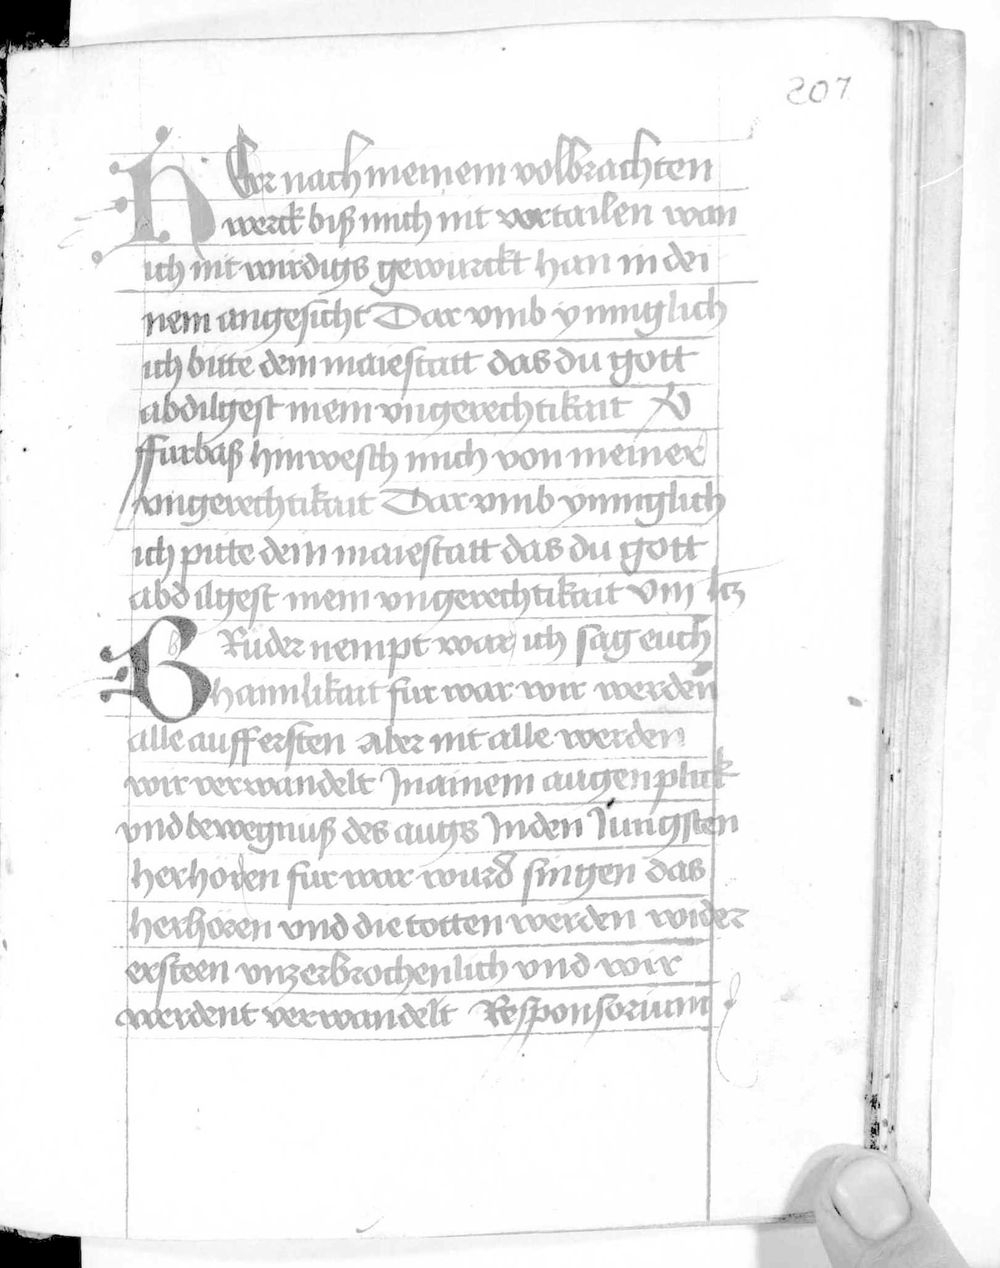 207
HEr nach meinem volbrachten
werck biß mich nit vortailen wan
ich nit wirdigs gewurckt han in dei
nem angesicht Dar vmb ynniglich
ich bitte dein maiestatt das du gott
abdilgest mein vngerechtikait V
ffurbaß hinwesch mich von meiner
vngerechtikait Dar vmb ynniglich
ich pitte dein maiestatt das du gott
abdilgest mein vngerechtikait vm
BRuder nempt war ich sag euch
haimlikait fur war wir werden
alle auff ersten aber nit alle werden
wir verwandelt In ainem augenplick
vnd bewegnuß des augs In den Jungsten
herhoren fur war wurd singen das
herhoren vnd die totten werden wider
ersteen vnzerbrochenlich vnd wir
werdent verwandelt Responsorium